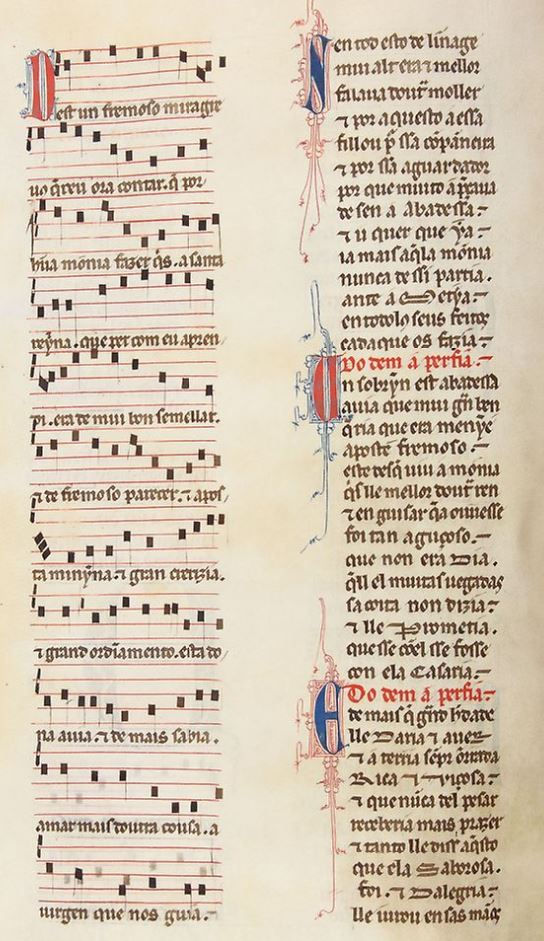 Dest un fremoso miragre
uos q̃reu ora contar. q̃ por
hũa monia fazer q̇s. a santa
reỹna. que per com eu apren
pi. era de mui bon semellar.
⁊ de fremoso parecer. ⁊ apos,
ta minỹna. ⁊ gran crerizia.
⁊ grand ordĩamento. esta do,
na auia. ⁊ de mais sabia.
amar mais doutra cousa. a
uirgen que nos guia.
Sen tod esto de linage
mui alt era ⁊ mellor
falaua doutr̃ moller
⁊ por aquesto a essa
fillou p̃ ssa cõpãneira
⁊ por ssa aguardador
por que muito a p̃çaua
de sen a abadessa.
⁊ u quer que ỹa
ia mais aq̃la monia
nunca de ssi partia.
ante a
en todolos seus feitos
cada que os fazia.
Do dem a perfia.
Un sobrỹn est abadessa
auia que mui gñ ben
q̃ria que era menỹo
apost e fremoso.
este desq̃ uiu a monia
q̇s lle mellor doutr̃ ren
⁊ en guisar q̃ a ouuesse
foi tan aguçoso.
que non era dia.
q̃ll el muitas uegadas
sa coita non dizia.
⁊ lle prometia.
que sse cõel sse fosse
con ela casaria.
Do dem a perfia.
E de mais q̃ grñd herdade
lle daria ⁊ auer
⁊ a terria senp̃r õrrada
Rica ⁊ uiçosa.
⁊ que nũca del pesar
receberia mais prazer
⁊ tanto lle diss aq̃sto
que ela saborosa.
foi. ⁊ dalegria.
lle iurou en sas mãos